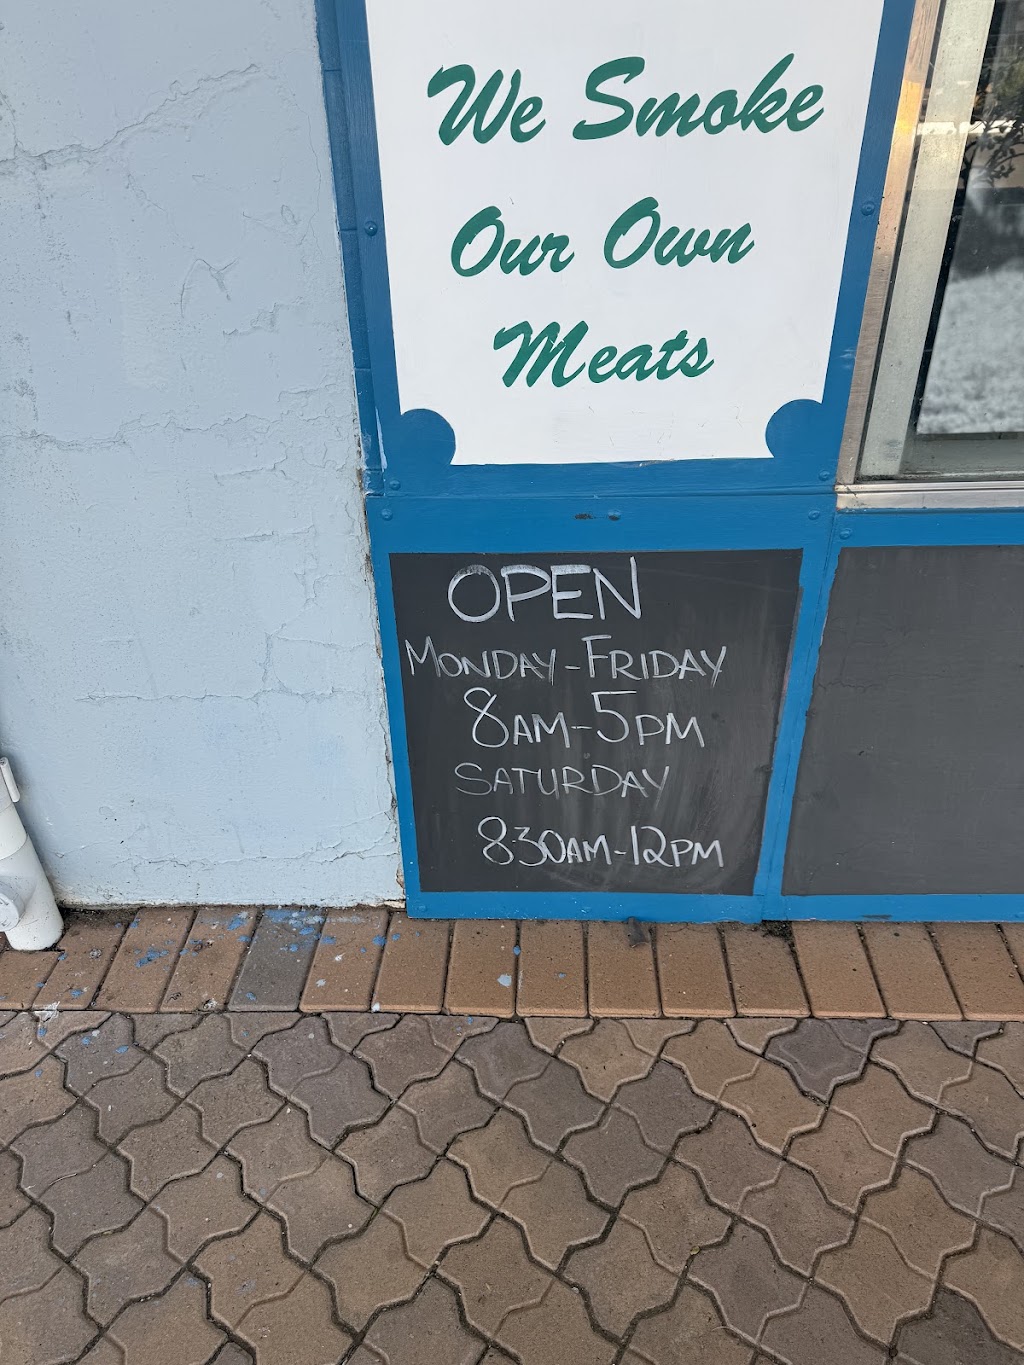 We Smoke
Our Own
Meats
OPEN
MONDAY-FRIDAY
8AM-5PM
SATURDAY
8:30AM-12PM